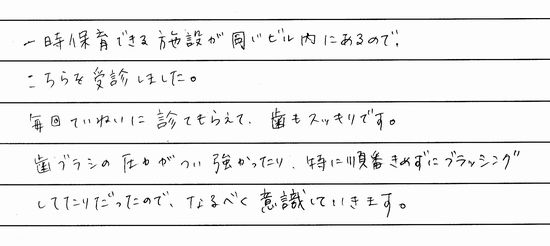 一時保育できる施設が同じビル内にあるので、
こちらを受診しました。
毎回ていねいに診てもらえて、歯もスッキリです。
歯ブラシの圧力がつい強かったり、特に順番きめずにブラッシング
してたりだったので、なるべく意識していきます。